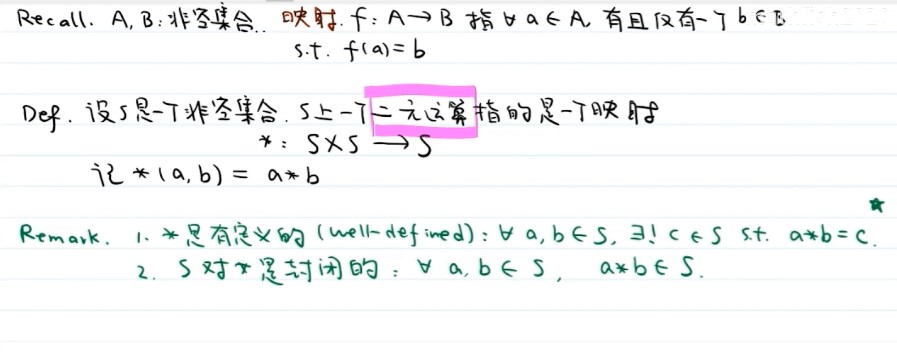 Recall. A, B: 非空集合. 映射. f: A → B 指 ∀ a ∈ A, 有且仅有一个 b ∈ B
s.t. f(a) = b
Def. 设 S 是一个非空集合. S 上一个二元运算指的是一个映射
*: S×S → S
记 *(a, b) = a*b
Remark. 1. * 是有定义的 (well-defined): ∀ a, b ∈ S, ∃! c ∈ S s.t. a*b = c.
2. S 对 * 是封闭的: ∀ a, b ∈ S, a*b ∈ S.